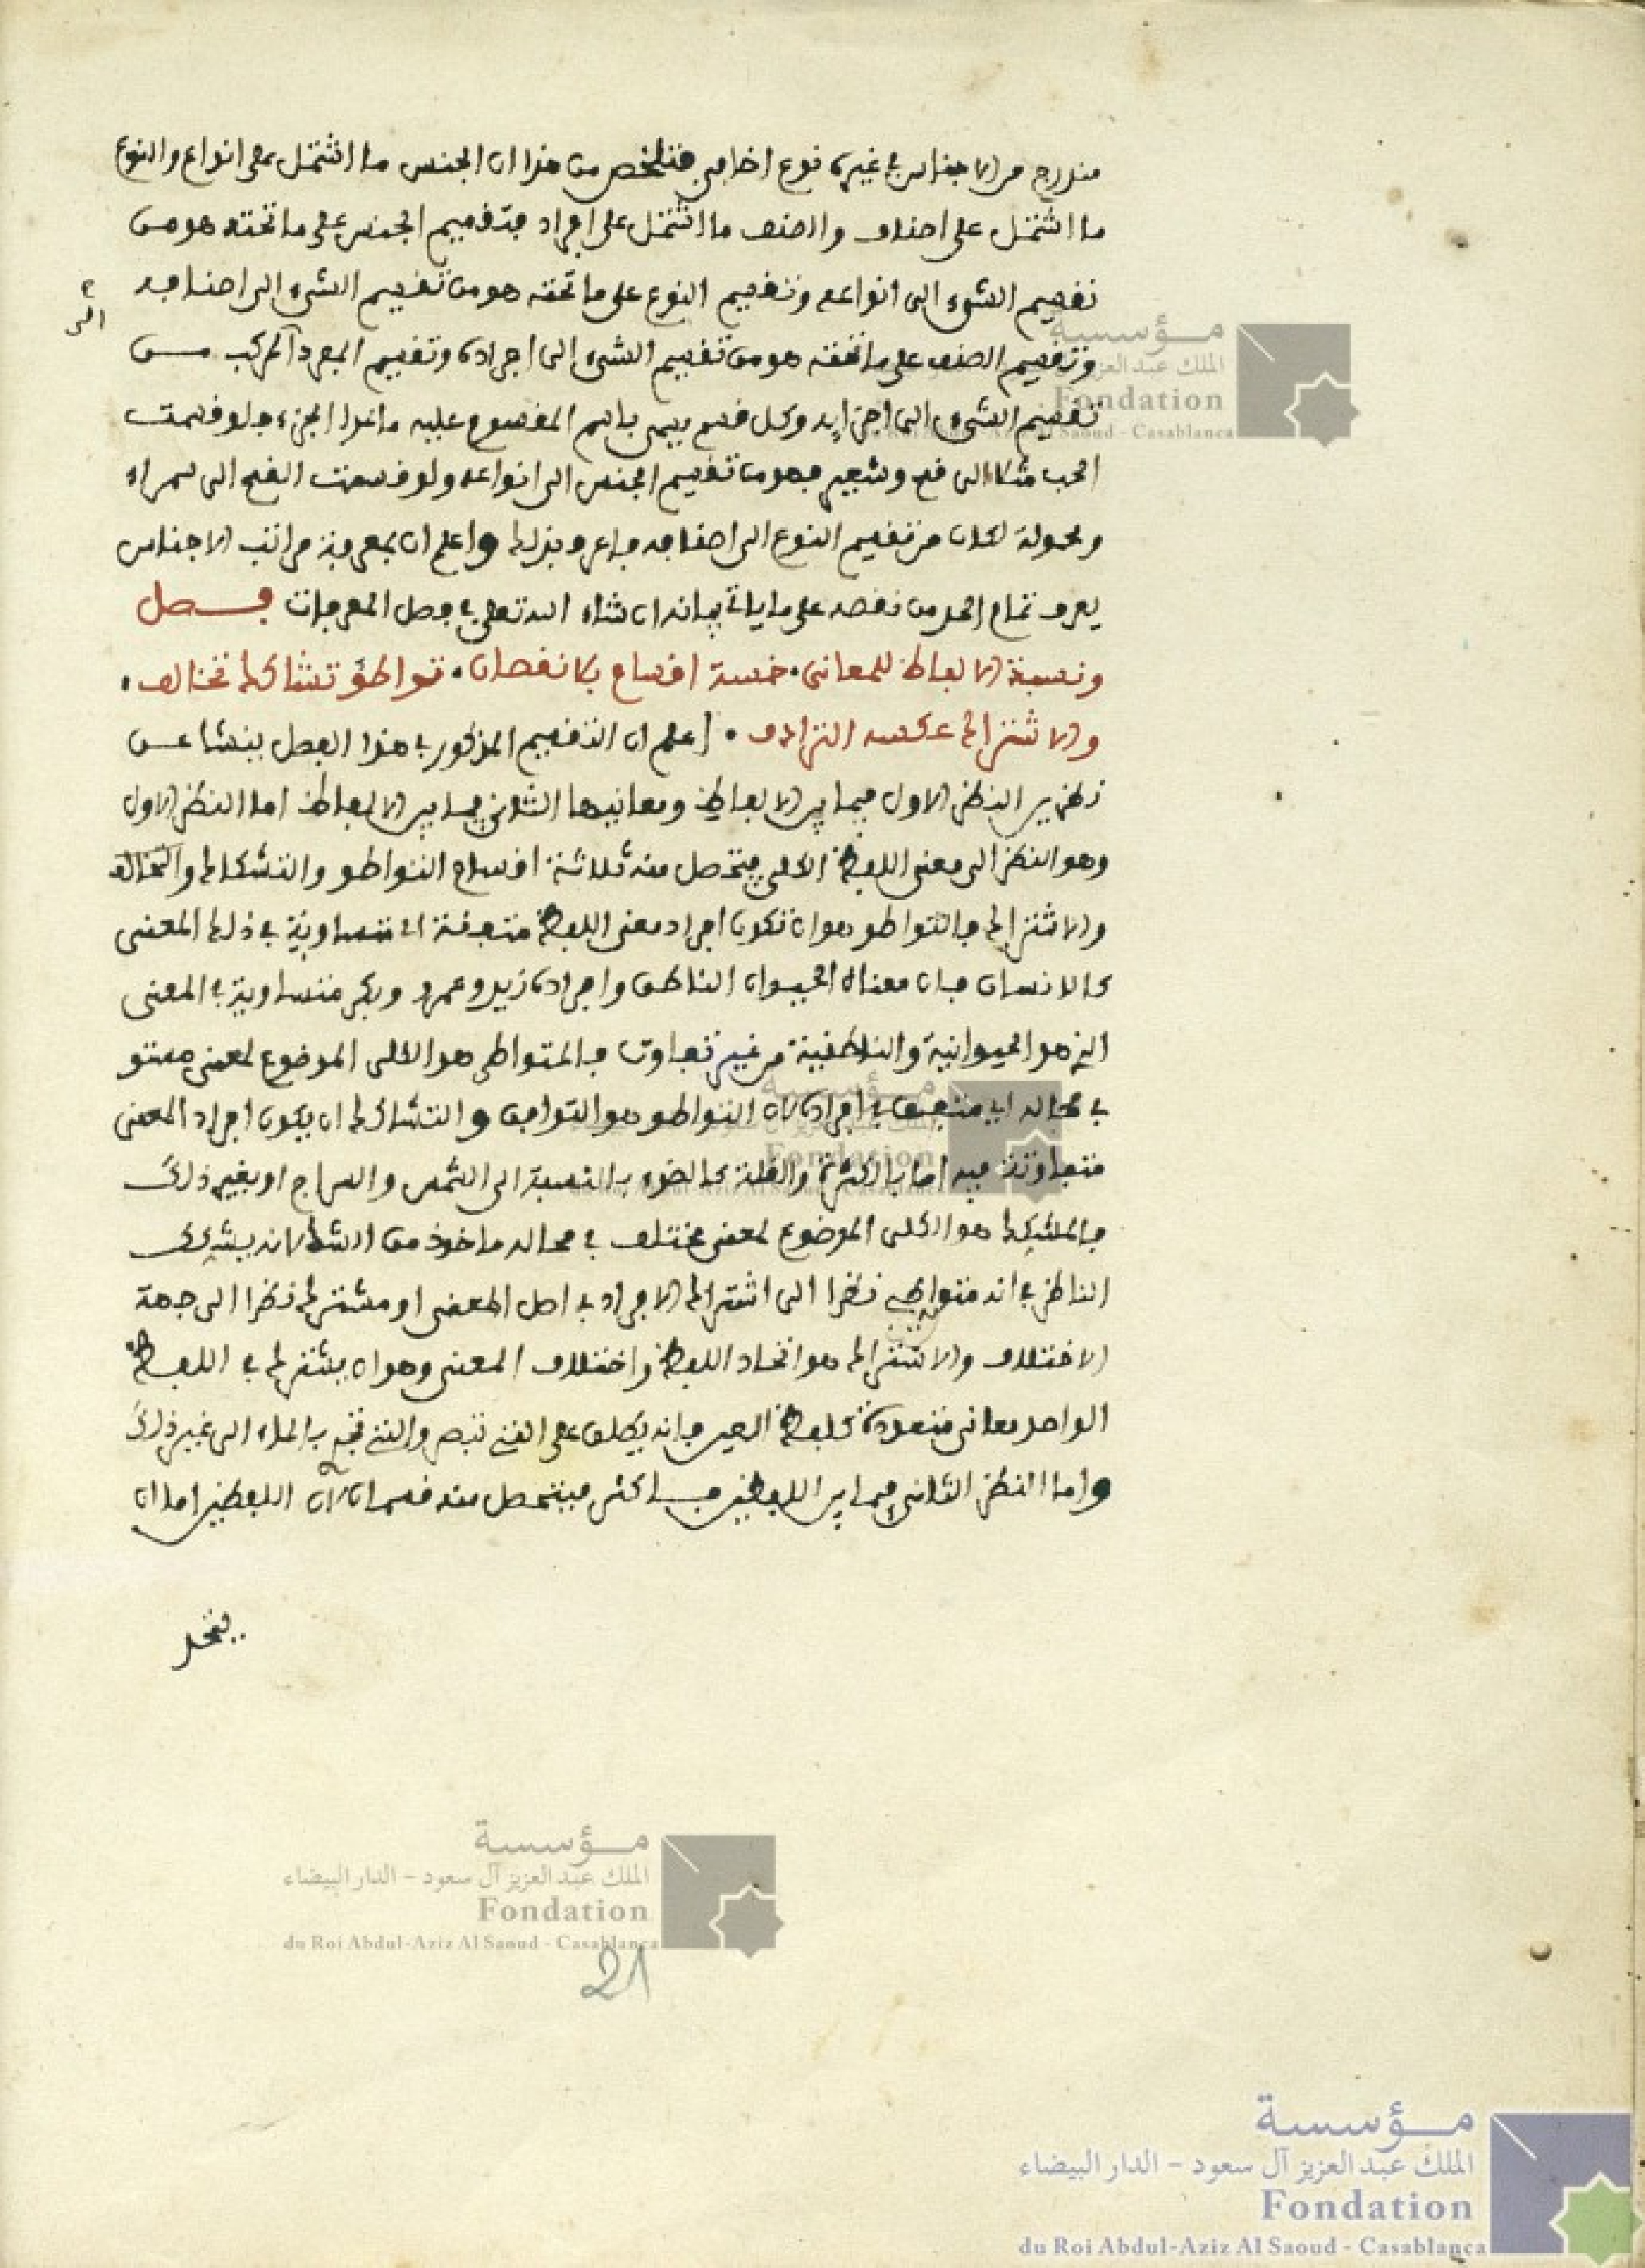 مندرج من الاجناس في غيره نوع اضافي فتلخص من هذا ان الجنس ما اشتمل على انواع والنوع
ما اشتمل على اصناف والصنف ما اشتمل على افراد فتقسيم الجنس على ما تحته هو من
تقسيم الشيء الى انواعه وتقسيم النوع على ما تحته هو من تقسيم الشيء الى اصنافه
وتقسيم الصنف على ما تحته هو من تقسيم الشيء الى افراده وتقسيم المفرد المركب من
الى
تقسيم الشيء الى اجزايه وكل قسم يسمى باسم المقسوم عليه ما عدا الجزء فلو قسمت
الحب مثلا الى قمح وشعير فهو من تقسيم الجنس الى انواعه ولو قسمت القمح الى سمراء
ومحمولة لكان من تقسيم النوع الى اصنافه فاعرف ذلك واعلم ان بمعرفة مراتب الاجناس
يعرف تمام الحد من نقصه على ما ياتي بيانه ان شاء الله تعلى في فصل المعرفات فصل
ونسبة الالفاظ للمعاني . خمسة اقسام بلا نقصان . تواطؤ تشاكك تخالف .
والاشتراك عكسه الترادف . اعلم ان التقسيم المذكور في هذا الفصل ينشا عن
نظرين النظر الاول فيما بين الالفاظ ومعانيها الثاني فيما بين الالفاظ اما النظر الاول
وهو النظر الى معنى اللفظ الكلي فيتحصل منه ثلاثة اقسام التواطو والتشكك والتخالف
والاشتراك فالتواطو هو ان تكون افراد معنى اللفظ متفقة اي متساوية في ذلك المعنى
كالانسان فان معناه الحيوان الناطق وافراده زيد وعمرو وبكر متساوية في المعنى
الذي هو الحيوانية والناطقية من غير تفاوت فالمتواطي هو الكلي الموضوع لمعنى مستو
في محاله اي متفق في افراده لان التواطو هو التوافق والتشاكك ان يكون افراد المعنى
متفاوتة فيه اما بالكثرة والقلة كالضوء بالنسبة الى الشمس والسراج او بغير ذلك
فالمشكك هو الكلي الموضوع لمعنى مختلف في محاله ماخوذ من الشك لانه يشكك
الناظر في انه متواطي نظرا الى اشتراك الافراد في اصل المعنى او مشترك نظرا الى جهة
الاختلاف والاشتراك هو اتحاد اللفظ واختلاف المعنى وهو ان يشترك في اللفظ
الواحد معاني متعددة كلفظ العين فانه يطلق على التي تبصر والتي تجر بالماء الى غير ذلك
واما النظر الثاني فيما بين اللفظين فاكثر فيتحصل منه قسمان لان اللفظين اما ان
يتحد
21
مؤسسة
الملك عبد العزيز آل سعود - الدار البيضاء
Fondation
du Roi Abdul-Aziz Al Saoud - Casablanca